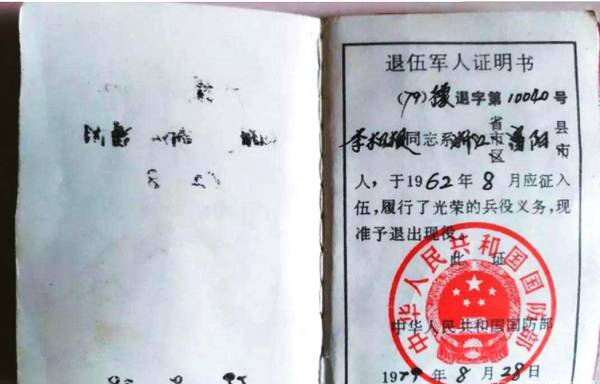 退伍军人证明书
(79) 退字第10040号
李 同志系浙江 省市区 阳 县市
人，于1962年8月应征入
伍，履行了光荣的兵役义务，现
准予退出现役。
此证
中华人民共和国国防部
中华人民共和国国防部
1979年8月28日